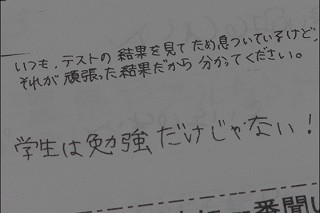 いつも、テストの結果を見てため息ついているけど、
それが頑張った結果だから分かってください。
学生は勉強だけじゃない！
番聞い